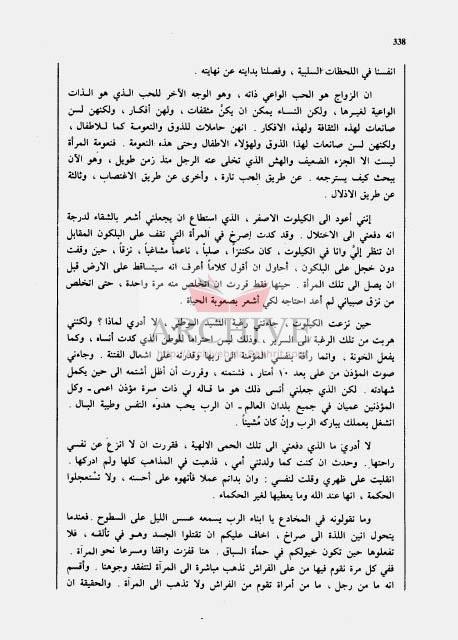 338
انفسنا في اللحظات السلبية ، وفصلنا بدايته عن نهايته .
ان الزواج هو الحب الواعي ذاته ، وهو الوجه الآخر للحب الذي هو الذات
الواعية لغيرها ، ولكن النساء يمكن ان يكنّ مثقفات ، ولهن أفكار ، ولكنهن لسن
صانعات لهذه الثقافة ولهذه الافكار . انهن حاملات للذوق والنعومة كما للاطفال ،
ولكنهن لسن صانعات لهذا الذوق ولهؤلاء الاطفال وحتى هذه النعومة . فنعومة المرأة
ليست الا الجزء الضعيف والهش الذي تخلى عنه الرجل منذ زمن طويل ، وهو الآن
يبحث كيف يسترجعه . عن طريق الحب تارة ، وأخرى عن طريق الاغتصاب ، وثالثة
عن طريق الاذلال .
إنني أعود الى الكيلوت الاصفر ، الذي استطاع ان يجعلني أشعر بالشقاء لدرجة
انه دفعني الى الاختلال . وقد كدت اصرخ في المرأة التي تقف على البلكون المقابل
ان تنظر إليّ وانا في الكيلوت ، كان مكتنزاً ، صلباً ، ناعماً مشاغباً ، نزقاً ، حين وقفت
دون خجل على البلكون ، أحاول ان أقول كلاماً أعرف انه سيتساقط على الارض قبل
ان يصل الى تلك المرأة . حينها فقط قررت ان اتخلص منه مرة واحدة ، حتى اتخلص
من نزق صبياني لم أعد احتاجه لكي أشعر بصعوبة الحياة .
حين نزعت الكيلوت ، جاءتني رغبة النشيد الوطني . لا أدري لماذا ؟ ولكنني
هربت من تلك الرغبة الى السرير ، وذلك ليس احتراما للوطن الذي كدت أنساه ، وكما
يفعل الخونة . وانما رأفة بنفسي المؤمنة الى ربها وقدرته على اشعال الفتنة . وجاءني
صوت المؤذن من على بعد ١٠ أمتار ، فشتمته ، وقررت أن أظل أشتمه الى حين يكمل
شهادته . لكن الذي جعلني أنسى ذلك هو ما قاله لي ذات مرة مؤذن اعمى ـ وكل
المؤذنين عميان في جميع بلدان العالم ـ ان الرب يحب هدوء النفس وطيبة البال .
انشغل بعملك يباركه الرب وإنْ كان مُشيناً .
لا أدري ما الذي دفعني الى تلك الحمى الالهية ، فقررت ان لا انزع عن نفسي
راحتها . وحدث ان كنت كما ولدتني أمي ، فذهبت في المذاهب كلها ولم ادركها .
انقلبت على ظهري وقلت لنفسي : وان بدأتم عملا فأتهوه على أحسنه ، ولا تستعجلوا
الحكمة ، انها عند الله وما يعطيها لغير الحكماء .
وما تقولونه في المخادع يا ابناء الرب يسمعه عسس الليل على السطوح . فعندما
يتحول انين اللذة الى صراخ ، اخاف عليكم ان تقتلوا الجسد وهو في تألقه ، فلا
تفعلوها حين تكون خيولكم في حمأة السباق . هنا قفزت واقفا ومسرعا نحو المرآة .
ففي كل مرة نقوم فيها من على الفراش نذهب مباشرة الى المرآة لتتفقد وجوهنا . وأقسم
انه ما من رجل ، ما من امرأة تقوم من الفراش ولا تذهب الى المرآة . والحقيقة ان
ARCHIVE